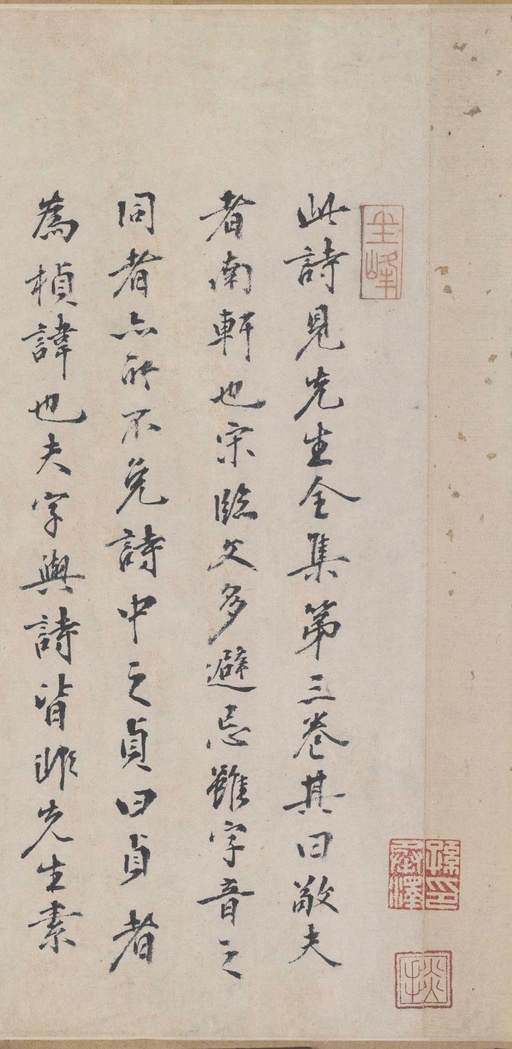 此詩見先生全集第三卷其曰敬夫
者南軒也宋臨文多避忌雖字音之
同者亦所不免詩中之貞曰貞者
為楨諱也夫字與詩皆先生素
孫印
承澤